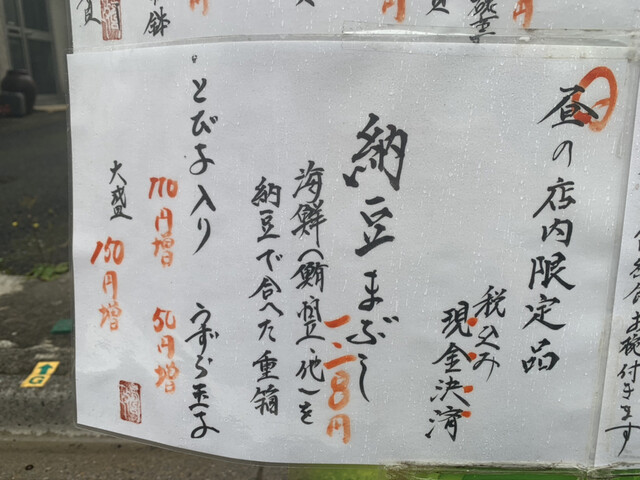 お椀付きます
昼の店内限定品
税込み
現金決済
納豆まぶし
円
海鮮(鮪 他)を
納豆で合へた重箱
・とび子入り
110円増
うずら玉子
50円増
大盛
150円増